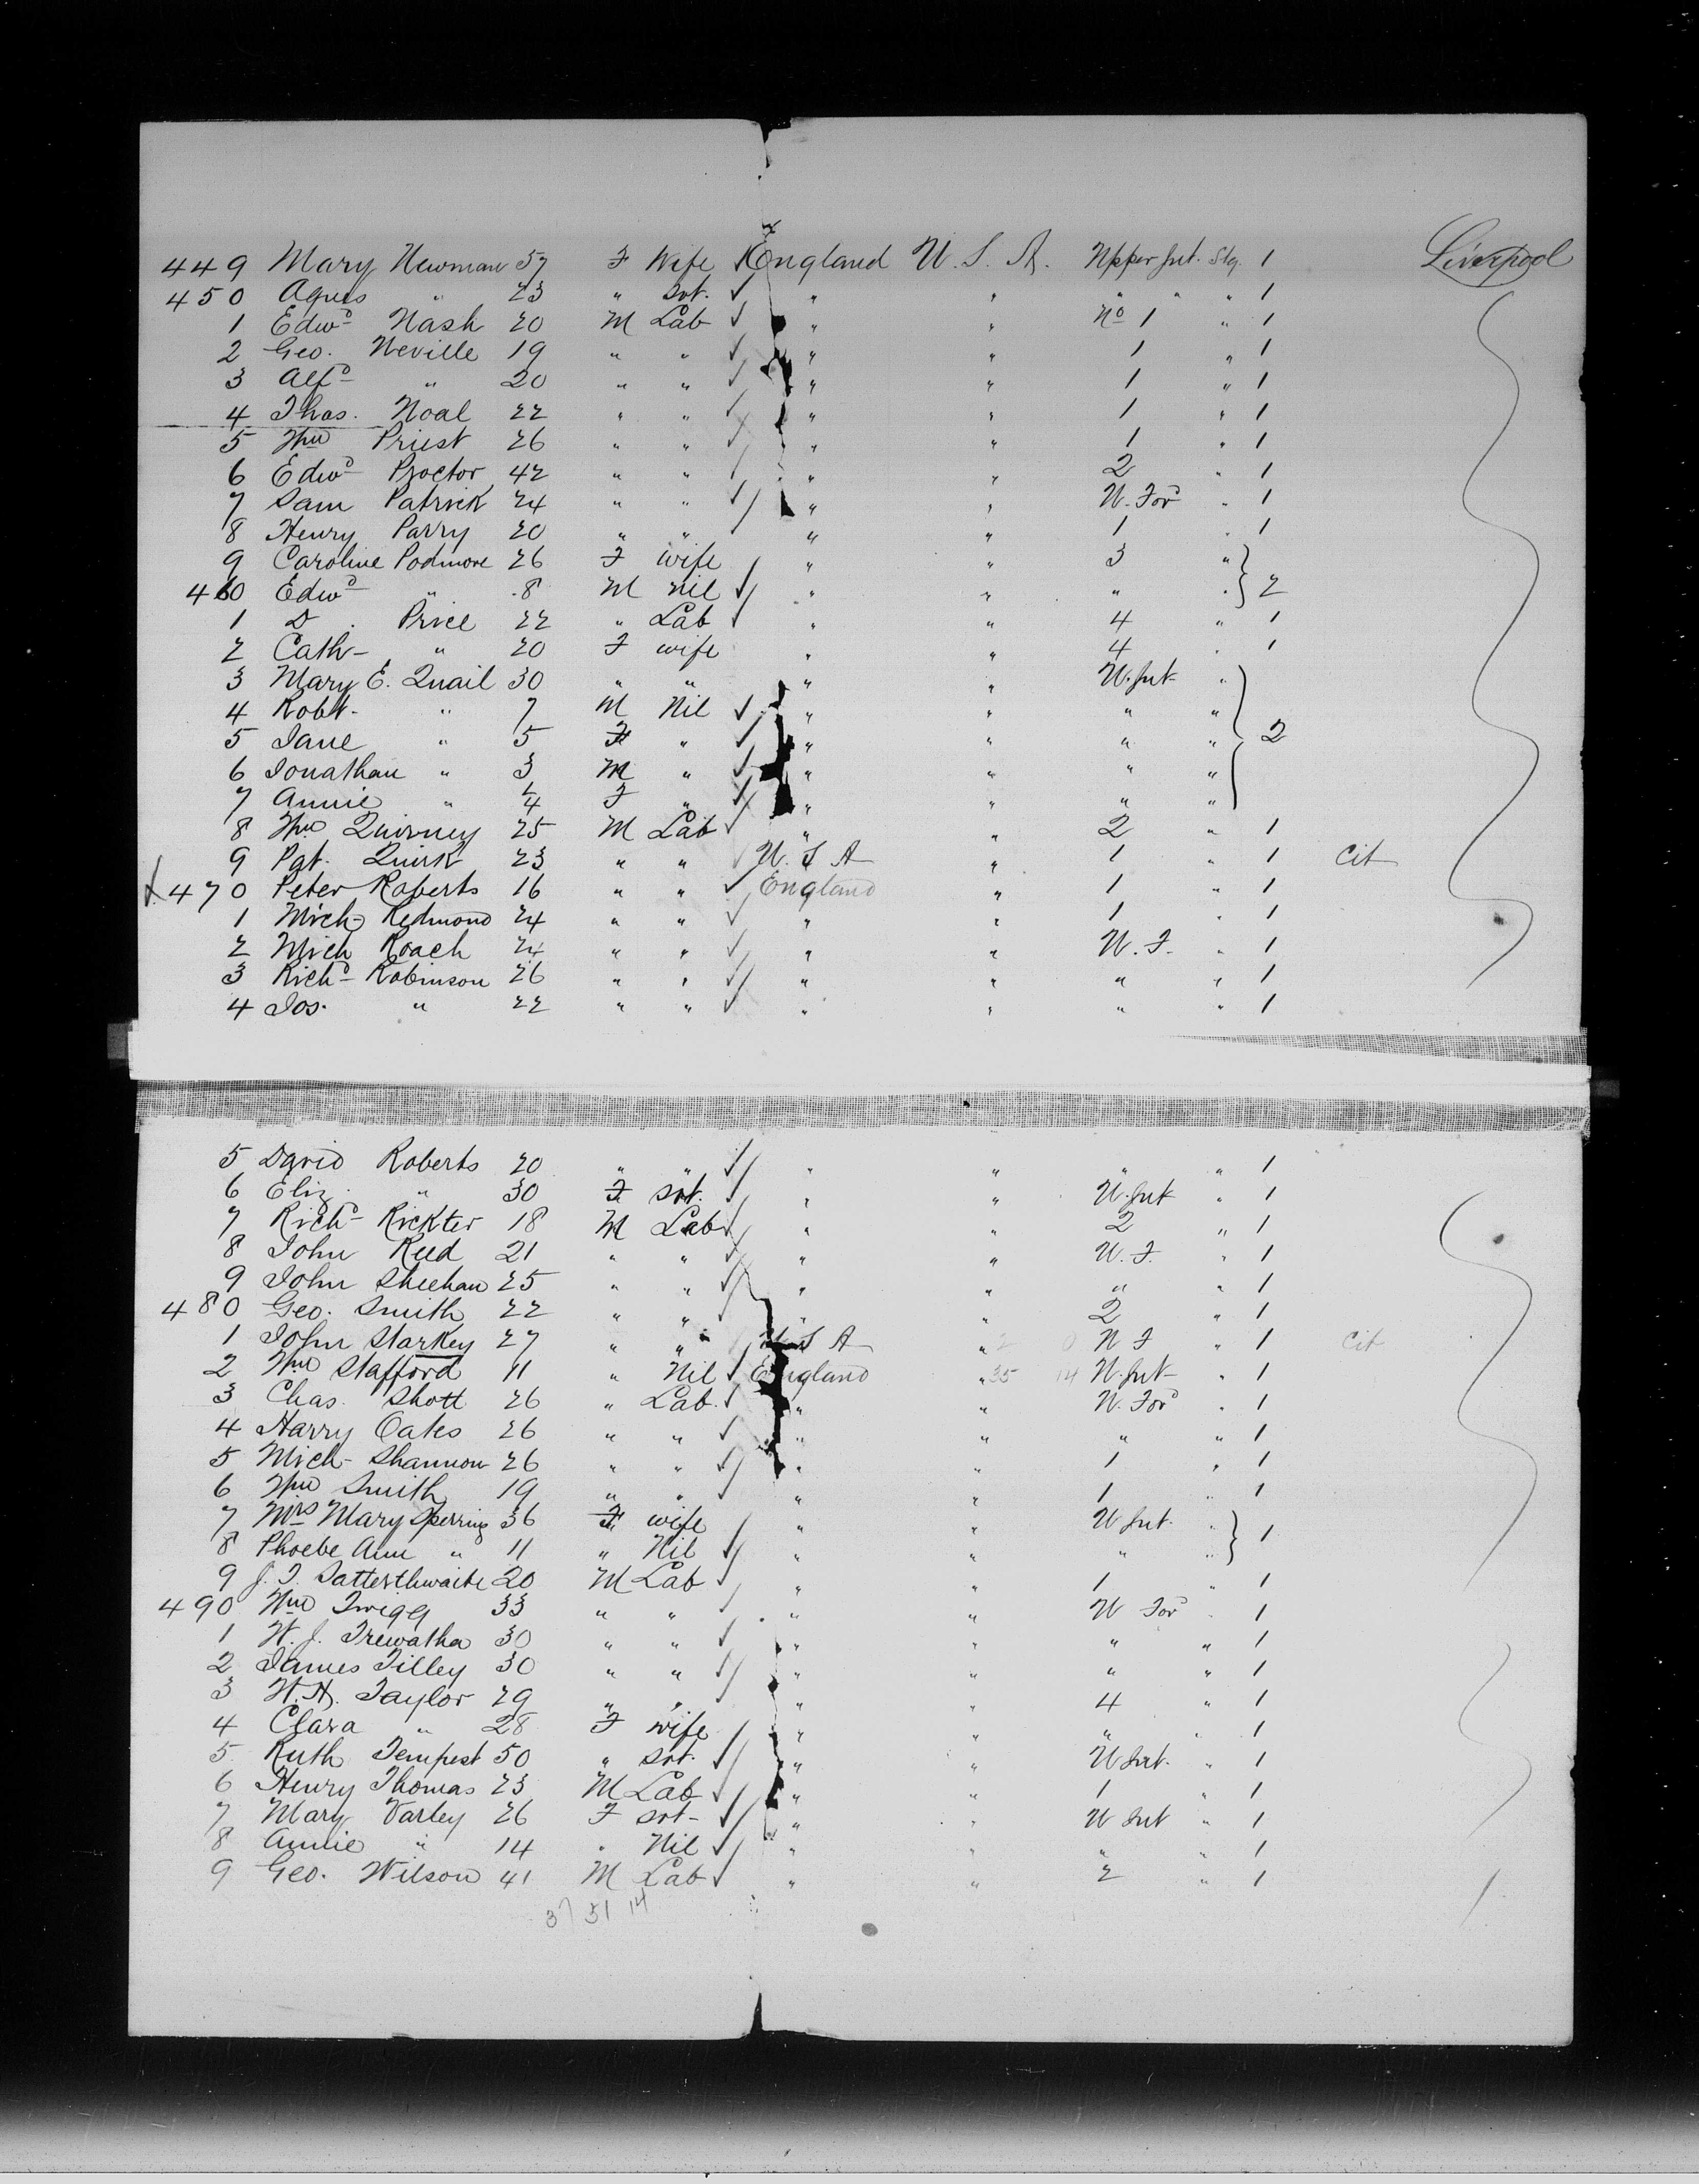 449 Mary Newman 57 F Wife England U. S. A. Upper Int. Stg. 1 Liverpool
450 Agnes " 23 " Svt. " " " " " 1
1 Edwd Nash 20 M Lab " " No 1 " 1
2 Geo. Neville 19 " " " " 1 " 1
3 Alfd " 20 " " " " 1 " 1
4 Thos. Noal 22 " " " " 1 " 1
5 Wm Priest 26 " " " " 1 " 1
6 Edwd Proctor 42 " " " " 2 " 1
7 Sam Patrick 24 " " " " U. Ford " 1
8 Henry Parry 20 " " " " 1 " 1
9 Caroline Podmore 26 F wife " " 3 "
460 Edwd " 8 M Nil " " " " 2
1 D. Price 22 " Lab " " 4 " 1
2 Cath- " 20 F wife " " 4 " 1
3 Mary E. Quail 30 " " " " U. Int "
4 Robt. " 7 M Nil " " " "
5 Jane " 5 F " " " " " 2
6 Jonathan " 3 M " " " " "
7 Annie " 1/4 F " " " " "
8 Wm Quirney 25 M Lab " " 2 " 1
9 Pat. Quirk 23 " " U. S A " 1 " 1 Cit
470 Peter Roberts 16 " " England " 1 " 1
1 Mich- Redmond 24 " " " " 1 " 1
2 Mich Roach 24 " " " " U. F. " 1
3 Richd Robinson 26 " " " " " " 1
4 Jos. " 22 " " " " " " 1
5 David Roberts 20 " " " " " " 1
6 Eliz. " 30 F Svt. " " U. Int " 1
7 Richd Rickter 18 M Lab " " 2 " 1
8 John Reed 21 " " " " U. F. " 1
9 John Sheehan 25 " " " " " " 1
480 Geo. Smith 22 " " " " 2 " 1
1 John Starkey 27 " " U S A " U F " 1 Cit
2 Wm Stafford 11 " Nil England " 35 14 U. Int- " 1
3 Chas. Shott 26 " Lab. " " U. Ford " 1
4 Harry Oates 26 " " " " " " 1
5 Mich- Shannon 26 " " " " 1 " 1
6 Wm Smith 19 " " " " 1 " 1
7 Mrs Mary Sperring 36 F wife " " U Int. "
8 Phoebe Ann " 11 " Nil " " " " 1
9 J. T. Satterthwaite 20 M Lab " " 1 " 1
490 Wm Twigg 33 " " " " U Ford " 1
1 W. J. Trewatha 30 " " " " " " 1
2 James Tilley 30 " " " " " " 1
3 W. H. Taylor 29 " " " " 4 " 1
4 Clara " 28 F wife " " " " 1
5 Ruth Tempest 50 " Svt. " " U Int. " 1
6 Henry Thomas 23 M Lab " " 1 " 1
7 Mary Varley 26 F Svt- " " U Int " 1
8 Annie " 14 " Nil " " " " 1
9 Geo. Wilson 41 M Lab " " 2 " 1
37 51 14